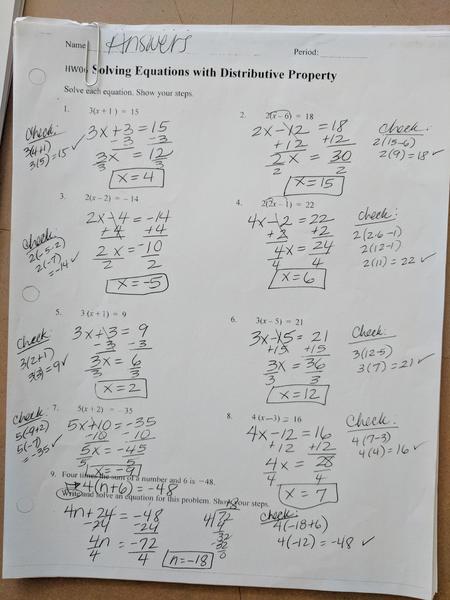 Name Answers Period:
HW06 Solving Equations with Distributive Property
Solve each equation. Show your steps.
1. 3(x + 1) = 15
3x + 3 = 15
-3 -3
3x = 12
3 3
x = 4
Check:
3(4+1)
3(5) = 15 ✓
2. 2(x – 6) = 18
2x - 12 = 18
+12 +12
2x = 30
2 2
x = 15
Check:
2(15-6)
2(9) = 18 ✓
3. 2(x – 2) = –14
2x - 4 = -14
+4 +4
2x = -10
2 2
x = -5
Check:
2(-5-2)
2(-7)
= -14 ✓
4. 2(2x – 1) = 22
4x - 2 = 22
+2 +2
4x = 24
4 4
x = 6
Check:
2(2·6-1)
2(12-1)
2(11) = 22 ✓
5. 3(x + 1) = 9
3x + 3 = 9
-3 -3
3x = 6
3 3
x = 2
Check:
3(2+1)
3(3) = 9 ✓
6. 3(x – 5) = 21
3x - 15 = 21
+15 +15
3x = 36
3 3
x = 12
Check:
3(12-5)
3(7) = 21 ✓
7. 5(x + 2) = –35
5x + 10 = -35
-10 -10
5x = -45
5 5
x = -9
Check:
5(-9+2)
5(-7)
= -35 ✓
8. 4(x – 3) = 16
4x - 12 = 16
+12 +12
4x = 28
4 4
x = 7
Check:
4(7-3)
4(4) = 16 ✓
9. Four times the sum of a number and 6 is –48.
4(n+6) = -48
Write and solve an equation for this problem. Show your steps.
4n + 24 = -48
-24 -24
4n = -72
4 4
n = -18
18
4 72
4
32
-32
0
Check:
4(-18+6)
4(-12) = -48 ✓